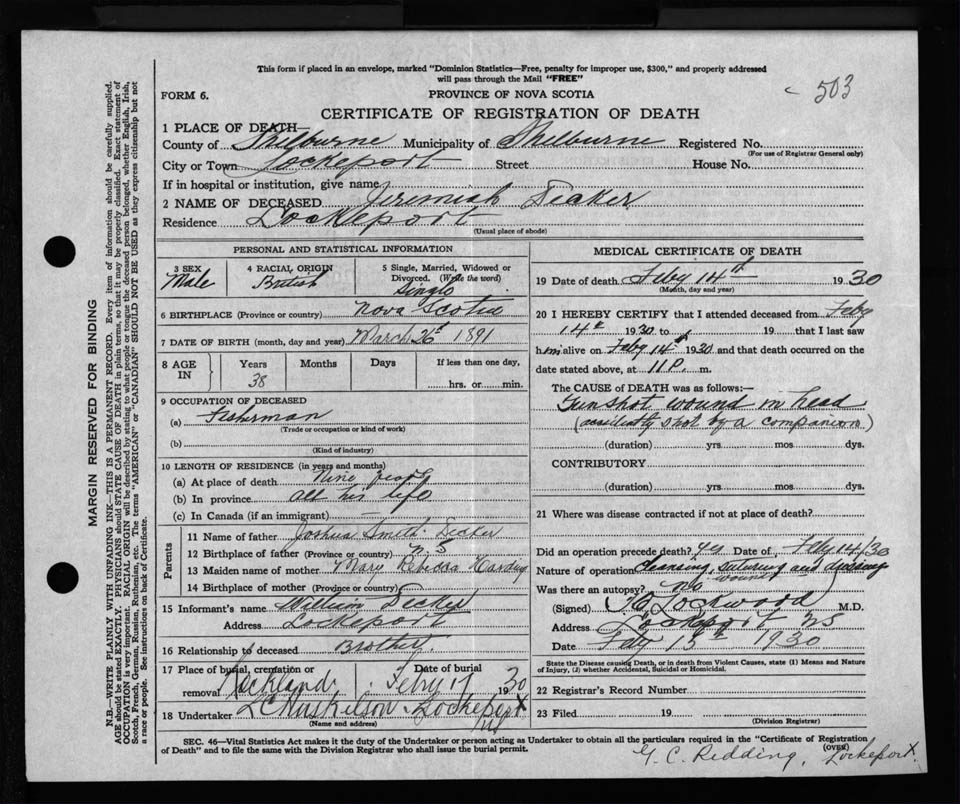 This form if placed in an envelope, marked "Dominion Statistics—Free, penalty for improper use, $300," and properly addressed
will pass through the Mail "FREE"
503
FORM 6.
PROVINCE OF NOVA SCOTIA
CERTIFICATE OF REGISTRATION OF DEATH
1 PLACE OF DEATH—
County of Shelburne Municipality of Shelburne Registered No.
(For use of Registrar General only)
City or Town Lockeport Street House No.
If in hospital or institution, give name
2 NAME OF DECEASED Jeremiah Decker
Residence Lockeport
(Usual place of abode)
PERSONAL AND STATISTICAL INFORMATION
3 SEX
Male
4 RACIAL ORIGIN
British
5 Single, Married, Widowed or
Divorced. (Write the word)
Single
6 BIRTHPLACE (Province or country) Nova Scotia
7 DATE OF BIRTH (month, day and year) March 26 1891
8 AGE IN
Years Months Days If less than one day,
38 hrs. or min.
9 OCCUPATION OF DECEASED
(a) Fisherman
(Trade or occupation or kind of work)
(b)
(Kind of industry)
10 LENGTH OF RESIDENCE (in years and months)
(a) At place of death Nine years
(b) In province all his life
(c) In Canada (if an immigrant)
Parents
11 Name of father Joshua Smith Decker
12 Birthplace of father (Province or country) N.S
13 Maiden name of mother Mary Harding
14 Birthplace of mother (Province or country)
15 Informant's name William Decker
Address Lockeport
16 Relationship to deceased Brother
17 Place of burial, cremation or removal Rockland Date of burial Febry 17 1930
18 Undertaker Lockeport
(Name and address)
NS
MEDICAL CERTIFICATE OF DEATH
19 Date of death Feby 14th 1930
(Month, day and year)
20 I HEREBY CERTIFY that I attended deceased from Feby
14th 1930 to 19 that I last saw
him alive on Feby 14th 1930 and that death occurred on the
date stated above, at 11 P. m.
The CAUSE OF DEATH was as follows:—
Gunshot wound in head
(accidently shot by a companion)
(duration) yrs mos dys.
CONTRIBUTORY
(duration) yrs mos dys.
21 Where was disease contracted if not at place of death?
Did an operation precede death? yes Date of Feby 14/30
Nature of operation cleansing, suturing and dressing
wound
Was there an autopsy? No
(Signed) Lockwood M.D.
Address Lockeport NS
Date Feby 15th 1930
State the Disease causing Death, or in death from Violent Causes, state (1) Means and Nature
of Injury, (2) whether Accidental, Suicidal or Homicidal.
22 Registrar's Record Number
23 Filed 19
(Division Registrar)
SEC. 46—Vital Statistics Act makes it the duty of the Undertaker or person acting as Undertaker to obtain all the particulars required in the "Certificate of Registration
of Death" and to file the same with the Division Registrar who shall issue the burial permit.
(OVER)
G. C. Redding, Lockeport.
MARGIN RESERVED FOR BINDING
N.B.—WRITE PLAINLY WITH UNFADING INK—THIS IS A PERMANENT RECORD. Every item of information should be carefully supplied.
AGE should be stated EXACTLY. PHYSICIANS should STATE CAUSE OF DEATH in plain terms, so that it may be properly classified. Exact statement of
OCCUPATION is very important. RACIAL ORIGIN will be described by stating to what people or tongue the deceased person belonged, whether English, Irish,
Scotch, French, German, Russian, Ruthenian, etc. The terms "AMERICAN" or "CANADIAN" SHOULD NOT BE USED as they express citizenship but not
a race or people. See instructions on back of Certificate.